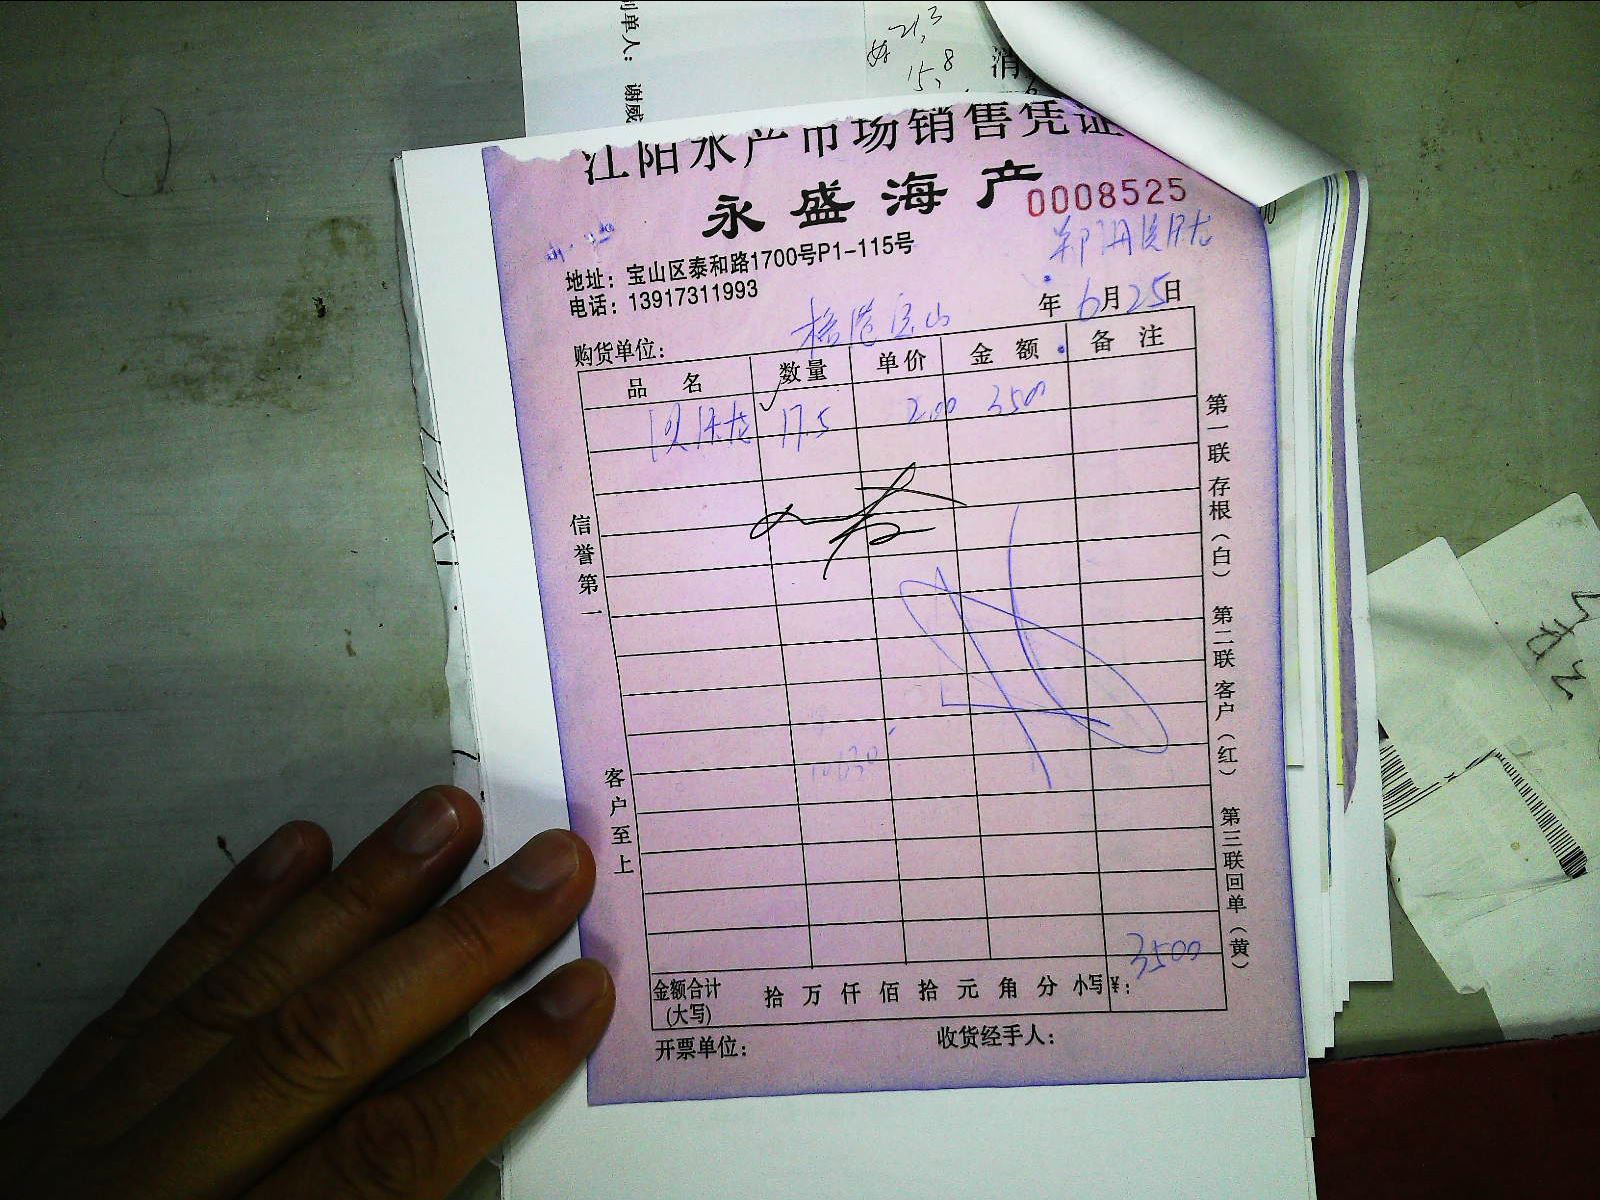 制单人： 谢威
21,3
15,8
消
江阳水产市场销售凭证
永盛海产
0008525
地址：宝山区泰和路1700号P1-115号
电话：13917311993
年 6月25日
购货单位：
品名 数量 单价 金额 备注
17.5 200 3500
信誉第一
客户至上
第一联 存根（白） 第二联 客户（红） 第三联 回单（黄）
3500
金额合计（大写） 拾 万 仟 佰 拾 元 角 分 小写￥：
开票单位： 收货经手人：